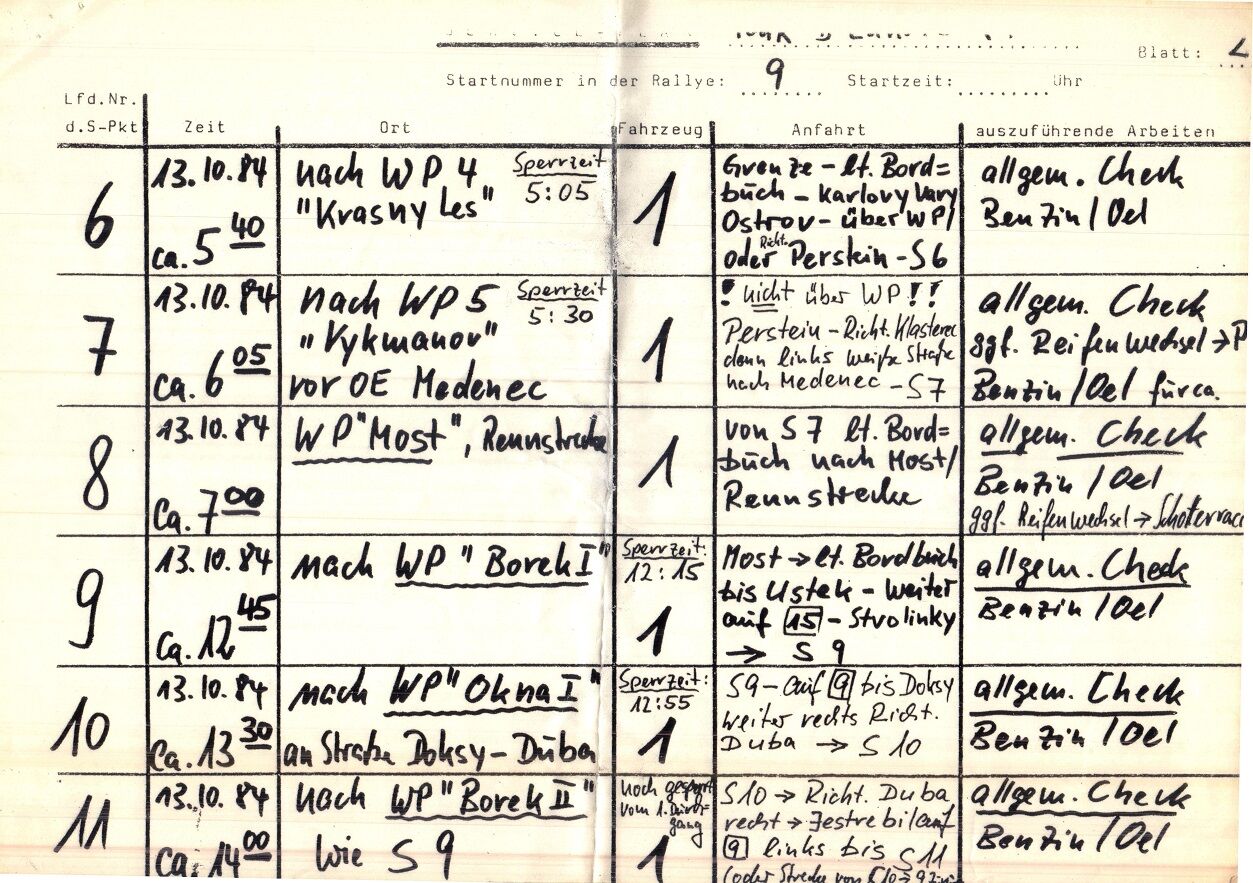 Blatt:
Startnummer in der Rallye: 9 Startzeit: Uhr
Lfd.Nr.
d.S-Pkt Zeit Ort Fahrzeug Anfahrt auszuführende Arbeiten
6
13.10.84
ca. 5 40
nach WP 4
"Krasny Les"
Sperrzeit
5:05
1
Grenze - lt. Bord=
buch - Karlovy Vary
Ostrov - über WP/
oder Richt. Perstein - S6
allgem. Check
Benzin/Oel
7
13.10.84
ca. 6 05
nach WP 5
"Vykmanov"
vor OE Medenec
Sperrzeit
5:30
1
! nicht über WP !!
Perstein - Richt. Klasterec
dann links weiße Straße
nach Medenec - S7
allgem. Check
ggf. Reifenwechsel → P
Benzin/Oel für ca.
8
13.10.84
ca. 7 00
WP "Most", Rennstrecke
1
von S7 lt. Bord=
buch nach Most/
Rennstrecke
allgem. Check
Benzin/Oel
ggf. Reifenwechsel →
9
13.10.84
ca. 12 45
nach WP "Borek I"
Sperrzeit:
12:15
1
Most → lt. Bordbuch
bis Ustek - weiter
auf 15 - Stvolinky
→ S 9
allgem. Check
Benzin/Oel
10
13.10.84
ca. 13 30
nach WP "Okna I"
an Straße Doksy - Duba
Sperrzeit:
12:55
1
S9 - auf 9 bis Doksy
weiter rechts Richt.
Duba → S 10
allgem. Check
Benzin/Oel
11
13.10.84
ca. 14 00
nach WP "Borek II"
wie S 9
noch gesperrt
vom 1. Durch=
gang
1
S10 → Richt. Duba
recht → Jestrebi auf
9 links bis S11
(oder Strecke von S10 → 9
allgem. Check
Benzin/Oel